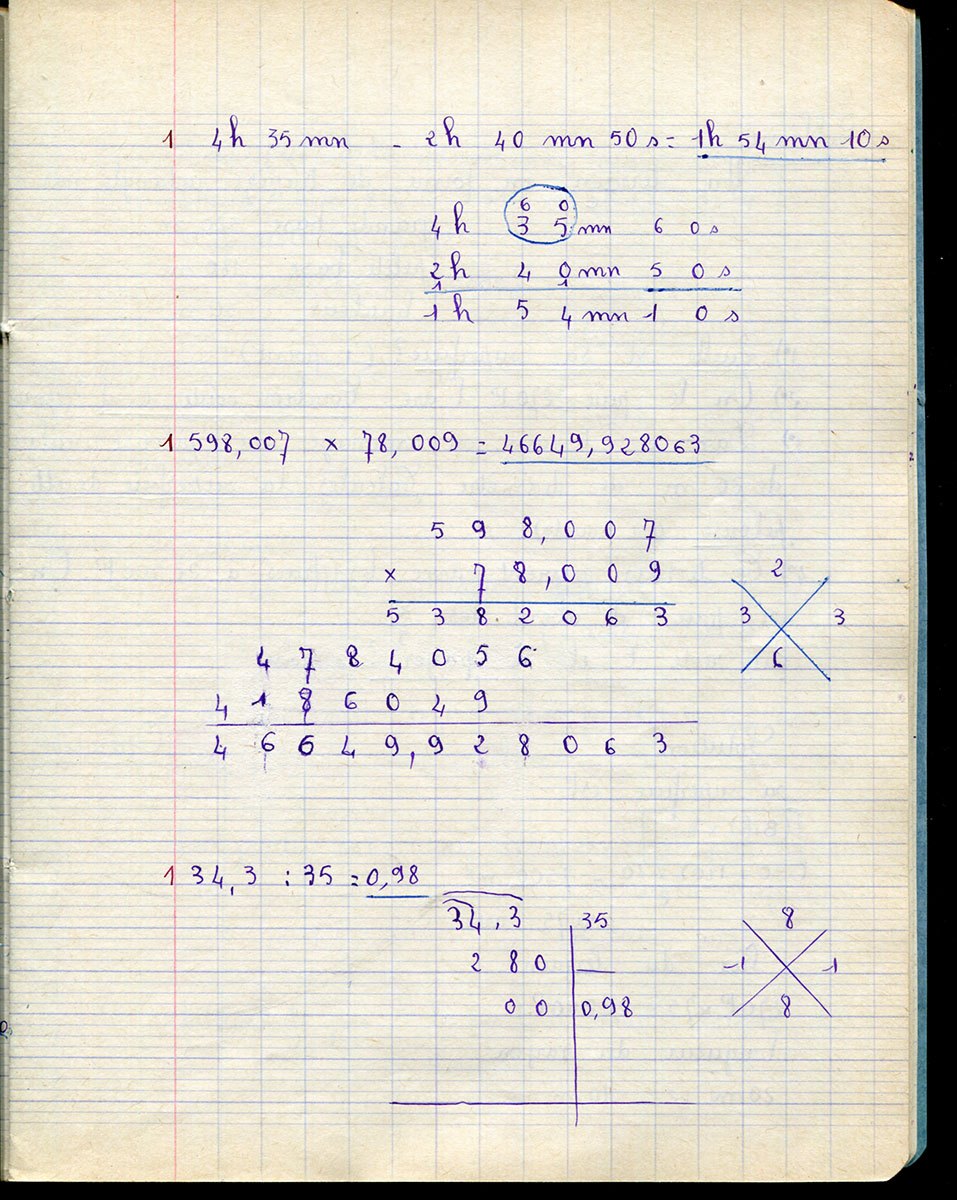 1 4h 35 mn - 2h 40 mn 50 s = 1h 54 mn 10 s
6 0
4h 3 5 mn 6 0 s
2h 4 0 mn 5 0 s
1 1
1h 5 4 mn 1 0 s
1 598,007 × 78,009 = 46649,928063
5 9 8,0 0 7
× 7 8,0 0 9
5 3 8 2 0 6 3
4 7 8 4 0 5 6
4 1 8 6 0 4 9
4 6 6 4 9,9 2 8 0 6 3
2
3 3
6
1 34,3 : 35 = 0,98
34,3 35
2 8 0
0 0 0,98
8
1 1
8